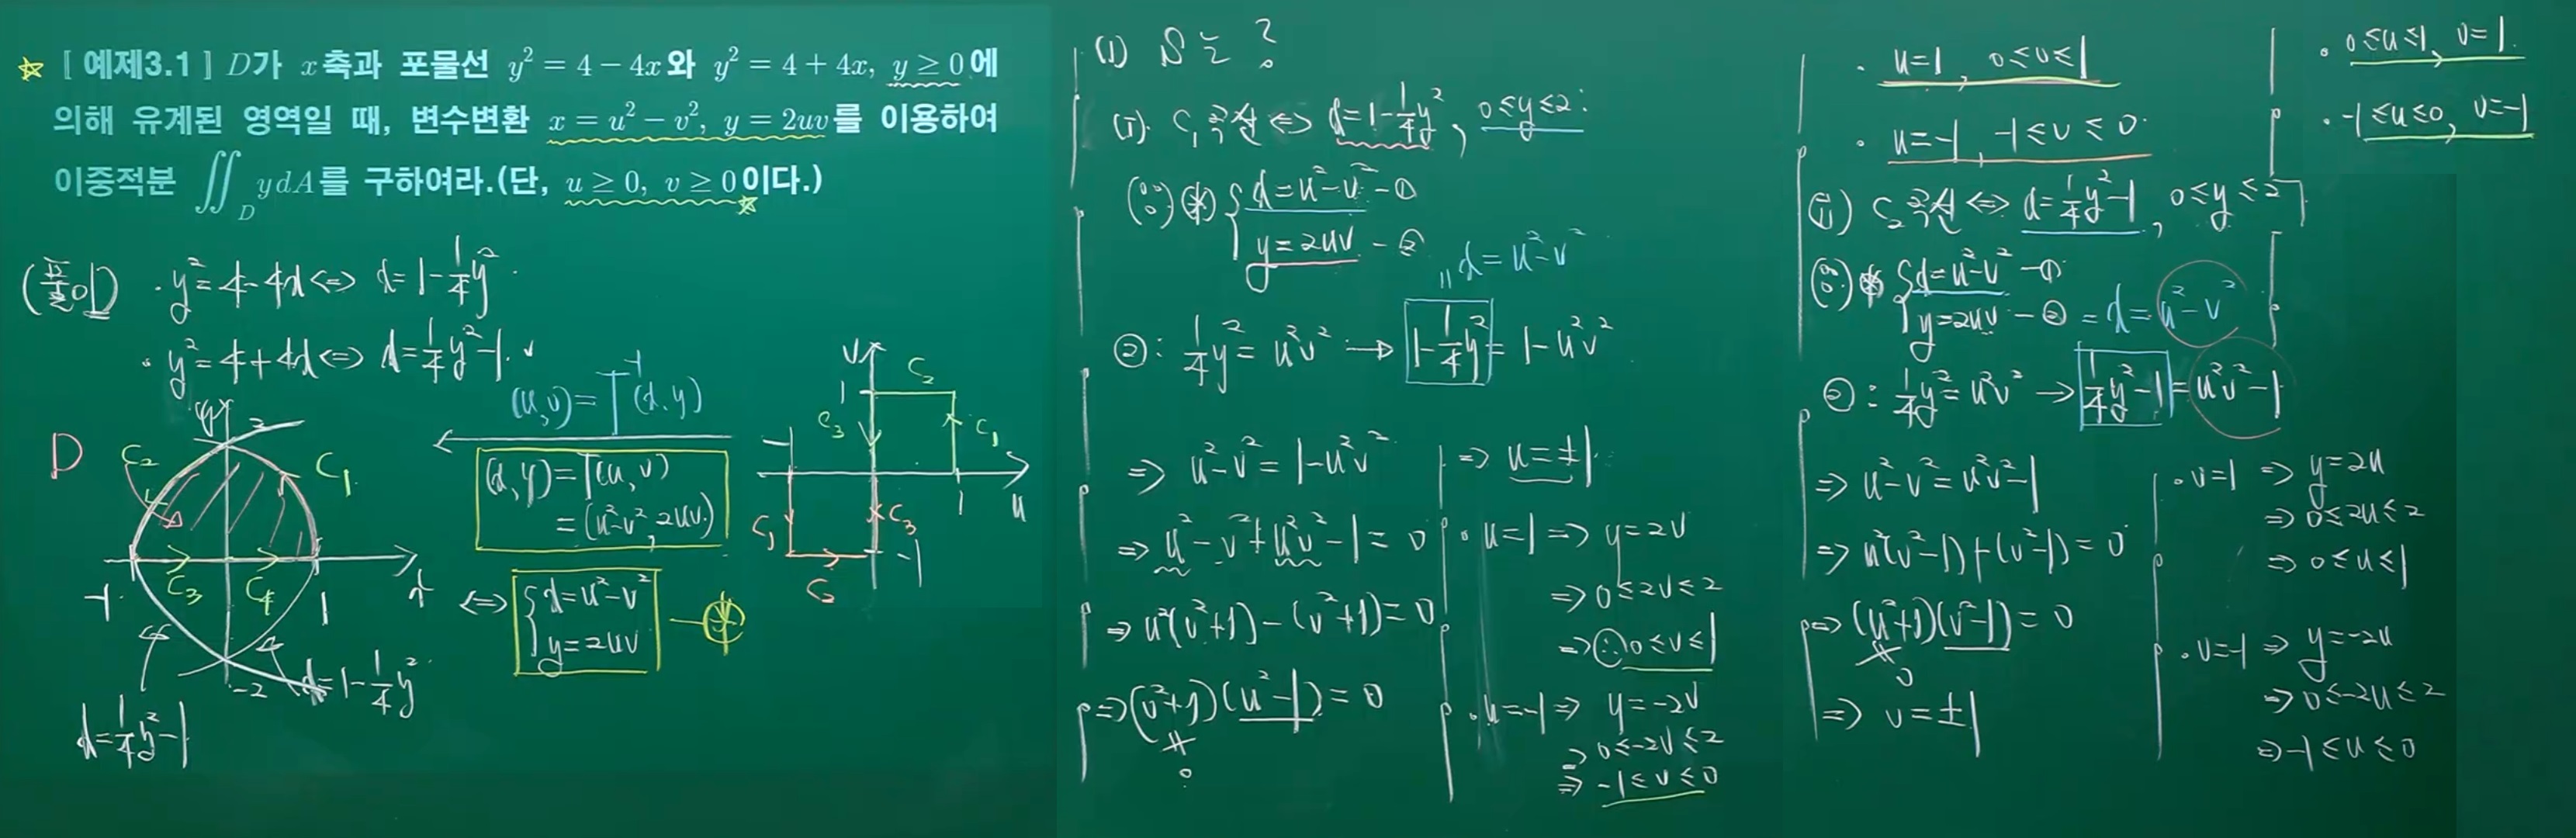 ☆ [ 예제3.1 ] D가 x축과 포물선 y² = 4 − 4x와 y² = 4 + 4x, y ≥ 0에
의해 유계된 영역일 때, 변수변환 x = u² − v², y = 2uv를 이용하여
이중적분 ∬_D ydA를 구하여라.(단, u ≥ 0, v ≥ 0이다.)
(풀이) · y² = 4-4x ⇔ x = 1-1/4y²
· y² = 4+4x ⇔ x = 1/4y²-1.
D
y
2
C₂
C₁
C₃
C₄
-1
1
x
-2
x = 1-1/4y²
x = 1/4y²-1
(u,v) = T⁻¹(x,y)
(x,y) = T(u,v)
= (u²-v², 2uv)
⇔ { x = u²-v²
y = 2uv
v
C₂
1
C₃
C₁
-1
1
u
C₁
C₃
-1
C₂
(1) S는?
(i). C₁곡선 ⇔ x = 1-1/4y², 0≤y≤2:
(∵) { x = u²-v² - ①
y = 2uv - ②
x = u²-v²
②: 1/4y² = u²v² → 1-1/4y² = 1-u²v²
⇒ u²-v² = 1-u²v²
⇒ u²-v²+u²v²-1 = 0
⇒ u²(v²+1)-(v²+1) = 0
⇒ (v²+1)(u²-1) = 0
0
⇒ u = ±1
· u=1 ⇒ y = 2v
⇒ 0≤2v≤2
⇒ ∴ 0≤v≤1
· u=-1 ⇒ y = -2v
⇒ 0≤-2v≤2
⇒ -1≤v≤0
· u=1, 0≤v≤1
· u=-1, -1≤v≤0
(ii) C₂곡선 ⇔ x = 1/4y²-1, 0≤y≤2
(∵) { x = u²-v² - ①
y = 2uv - ② = x = u²-v²
②: 1/4y² = u²v² → 1/4y²-1 = u²v²-1
⇒ u²-v² = u²v²-1
⇒ u²(v²-1)+(v²-1) = 0
⇒ (u²+1)(v²-1) = 0
0
⇒ v = ±1
· 0≤u≤1, v=1.
· -1≤u≤0, v=-1
· v=1 ⇒ y = 2u
⇒ 0≤2u≤2
⇒ 0≤u≤1
· v=-1 ⇒ y = -2u
⇒ 0≤-2u≤2
⇒ -1≤u≤0